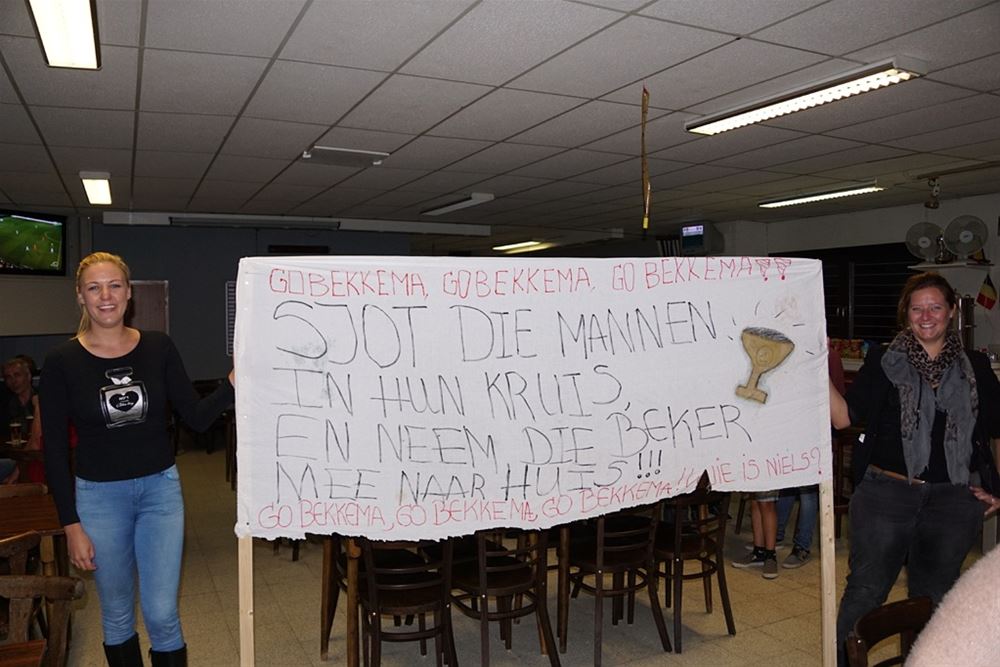 GO BEKKEMA, GO BEKKEMA, GO BEKKEMA??
SJOT DIE MANNEN
IN HUN KRUIS,
EN NEEM DIE BEKER
MEE NAAR HUIS!!!
GO BEKKEMA, GO BEKKEMA, GO BEKKEMA!! WIE IS NIELS?